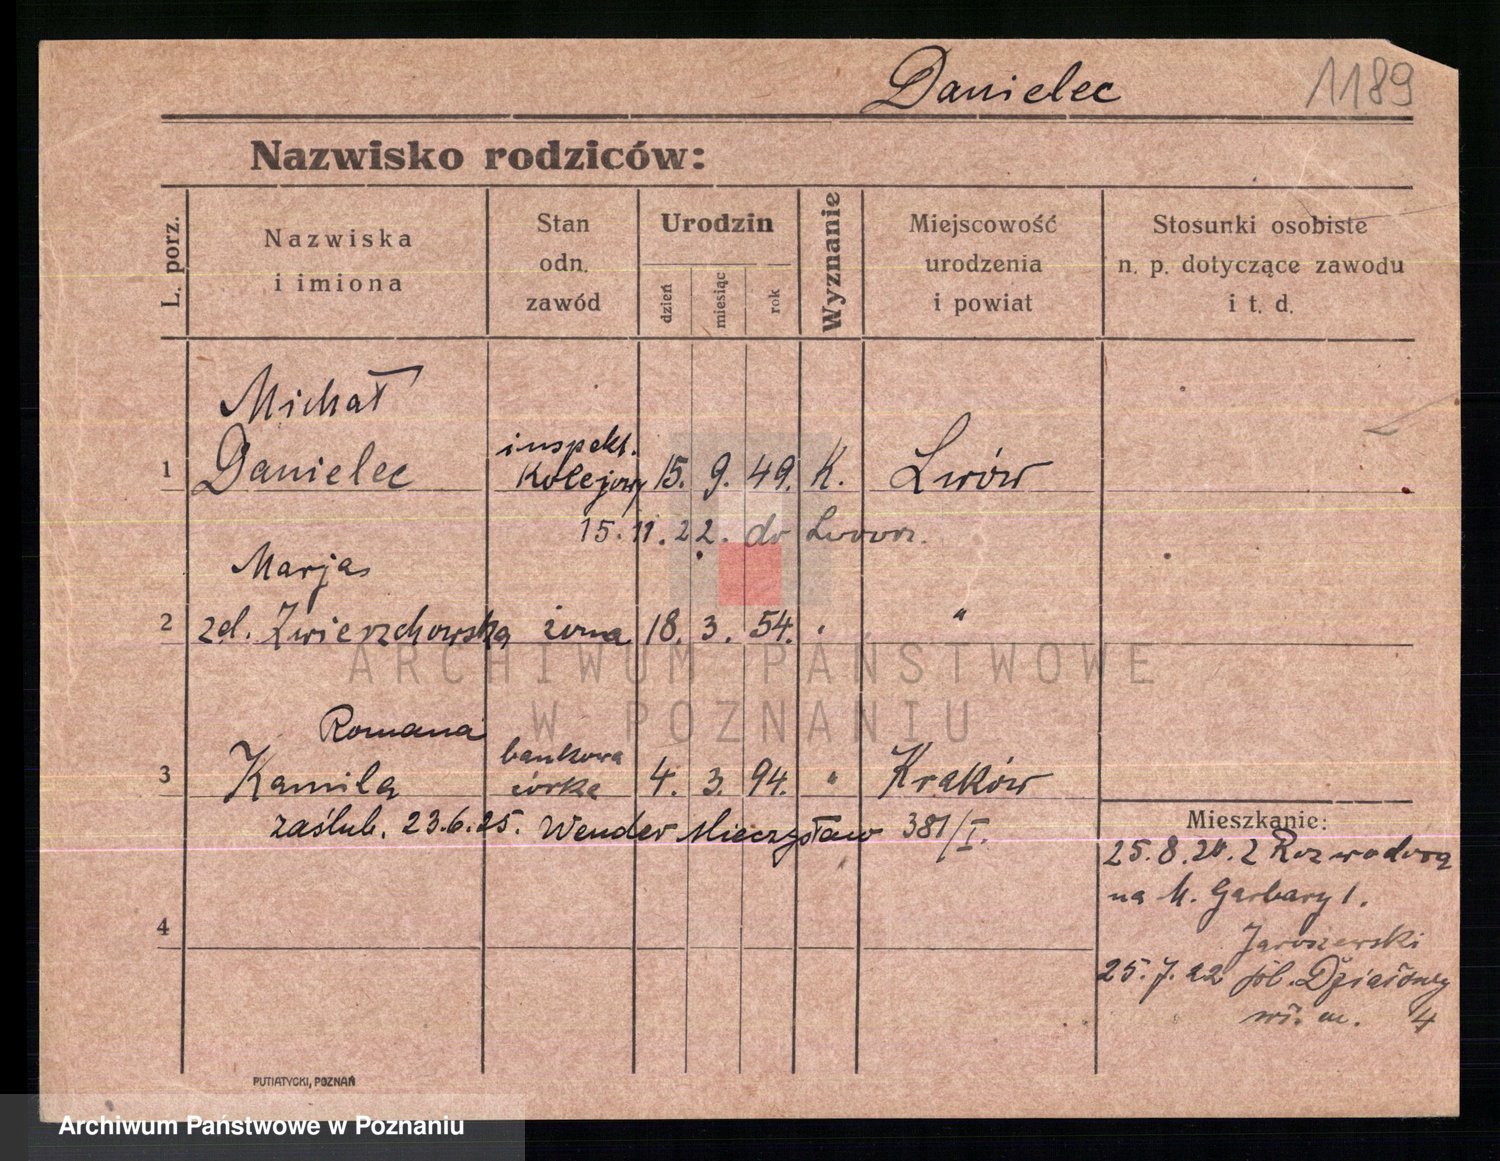 Danielec 1189
Nazwisko rodziców:
L. porz.
Nazwiska
i imiona
Stan
odn.
zawód
Urodzin
dzień
miesiąc
rok
Wyznanie
Miejscowość
urodzenia
i powiat
Stosunki osobiste
n. p. dotyczące zawodu
i t. d.
Michał
1 Danielec inspekt. Kolejowy 15. 9. 49. K. Lwów
15.11.22. do Lwowa.
Marja
2 zd. Zwierzchowska żona 18. 3. 54. " "
Romana
3 Kamila bankowa córka 4. 3. 94. " Kraków
zaślub. 23.6.25. Wender Mieczysław 381/I.
Mieszkanie:
25.8.20. z Rozwadowa
na M. Garbary 1.
Jaroszewski
25.7.22 pl. Działowy
wł. m. 4
4
PUTIATYCKI, POZNAŃ
ARCHIWUM PAŃSTWOWE
W POZNANIU
Archiwum Państwowe w Poznaniu